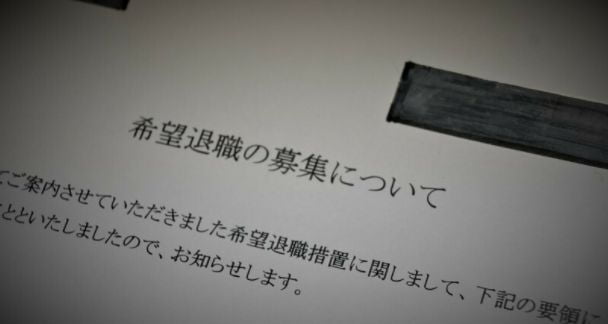 希望退職の募集について
てご案内させていただきました希望退職措置に関しまして、下記の要領に
こととといたしましたので、お知らせします。